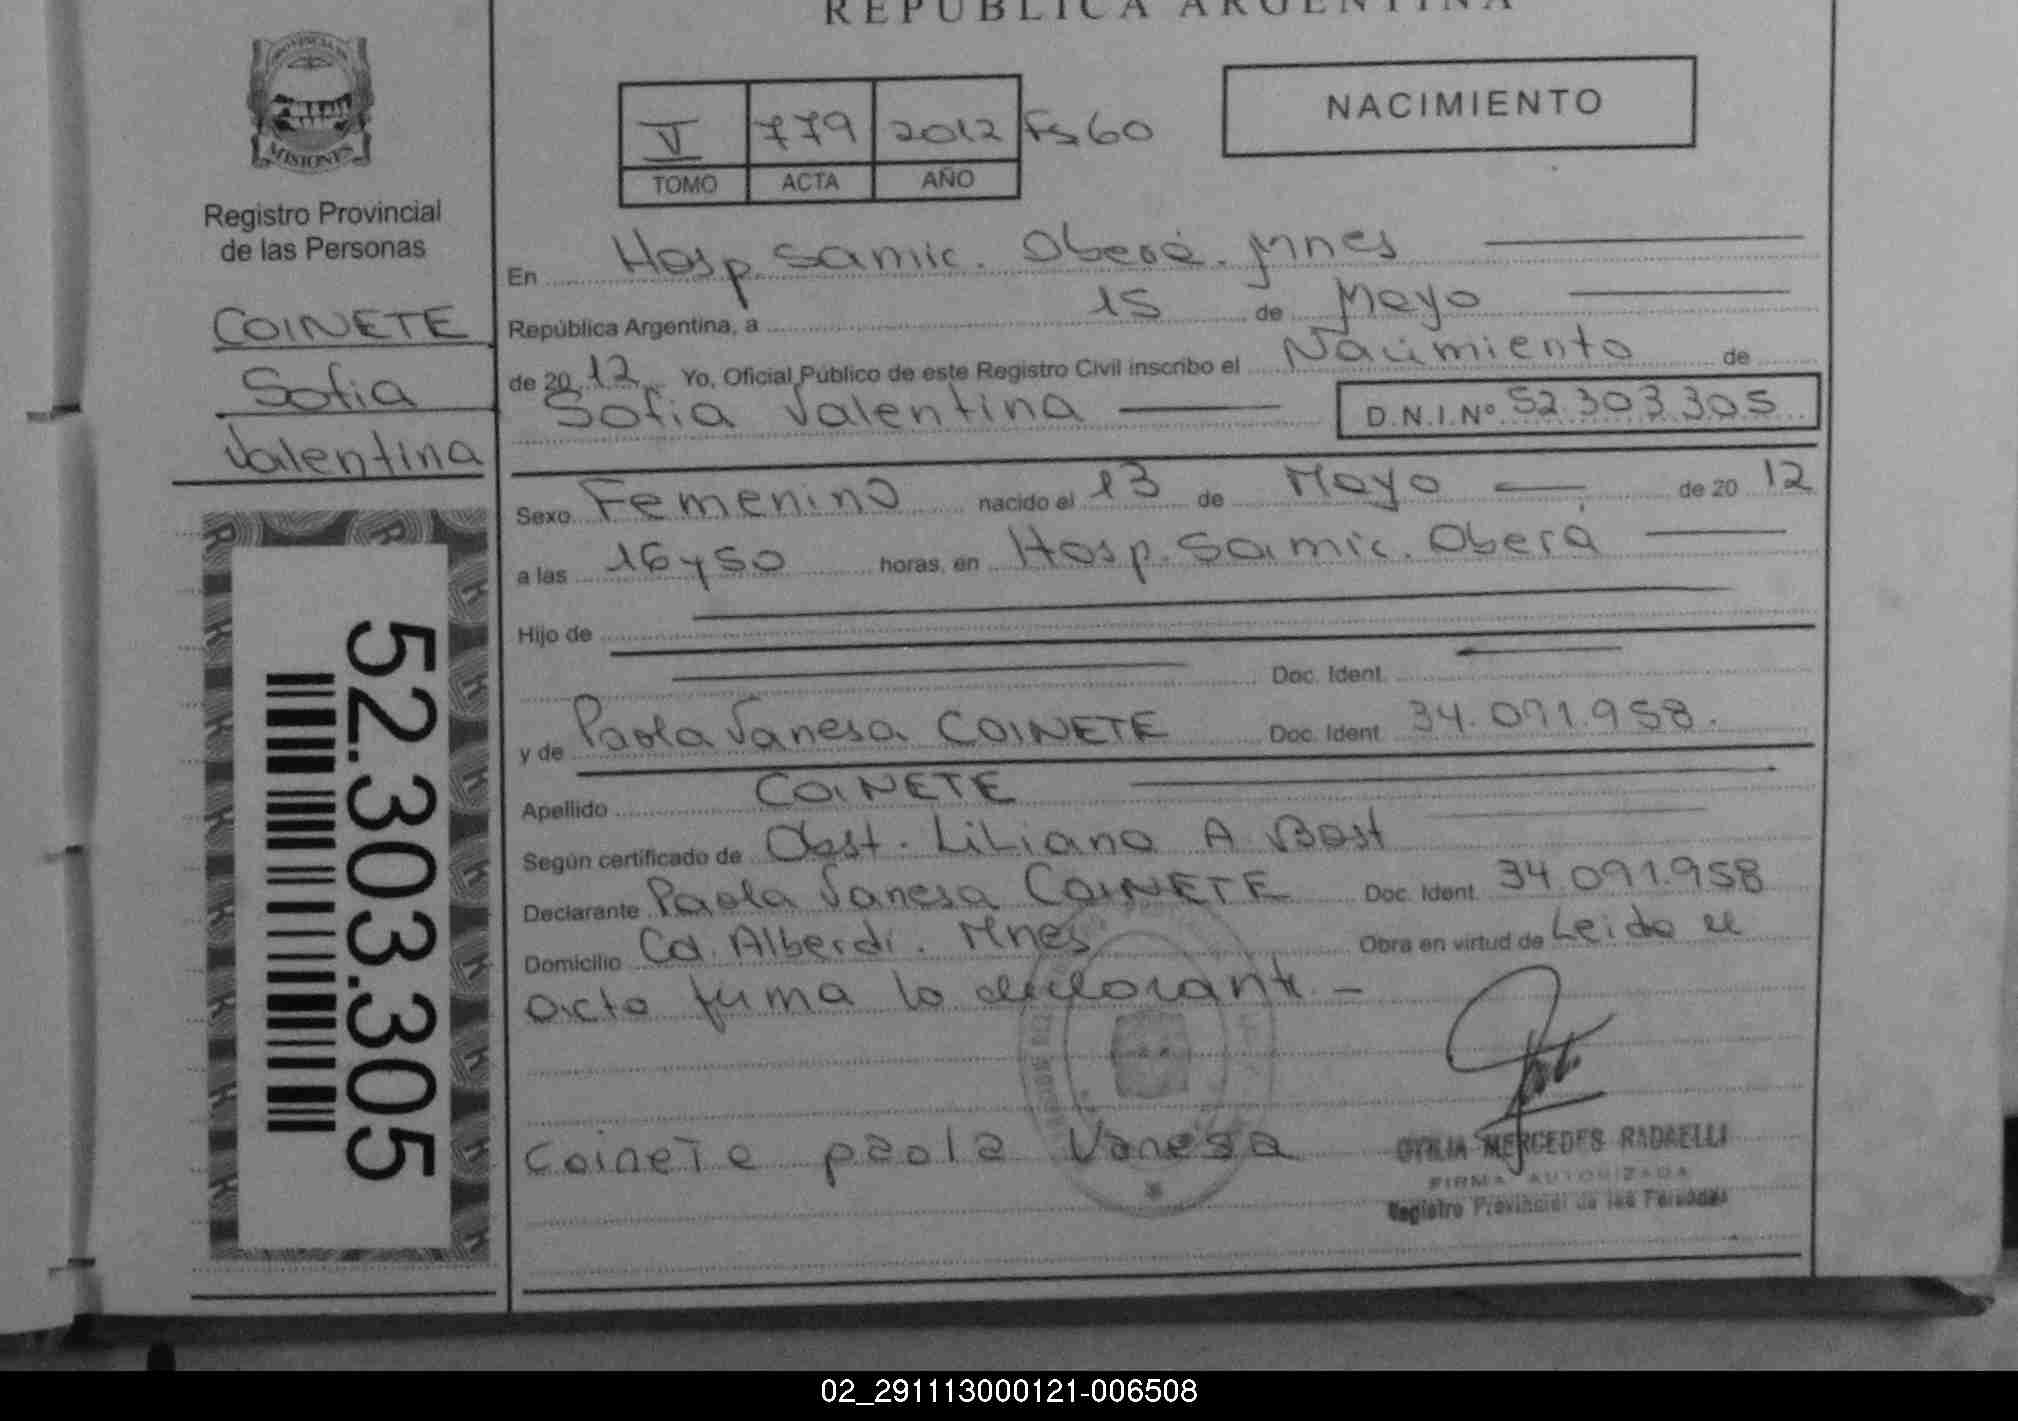 REPÚBLICA ARGENTINA
PROVINCIA DE
MISIONES
Registro Provincial
de las Personas
COINETE
Sofia
Valentina
52.303.305
V 779 2012 Fs 60
TOMO ACTA AÑO
NACIMIENTO
En Hosp. Samic. Oberá. Mnes
República Argentina, a 15 de Mayo
de 2012 Yo, Oficial Público de este Registro Civil inscribo el Nacimiento de
Sofia Valentina D.N.I.Nº 52.303.305
Sexo Femenino nacido el 13 de Mayo de 2012
a las 16 y 50 horas, en Hosp. Samic. Oberá
Hijo de
Doc. Ident.
y de Paola Vanesa COINETE Doc. Ident 34.091.958.
Apellido COINETE
Según certificado de Obst. Liliana A Bast
Declarante Paola Vanesa COINETE Doc. Ident. 34.091.958
Domicilio Cd. Alberdi. Mnes Obra en virtud de Leida el
acta firma la declarante. -
Coinete paola Vanesa
OTILIA MERCEDES RADAELLI
FIRMA AUTORIZADA
Registro Provincial de las Personas
02_291113000121-006508